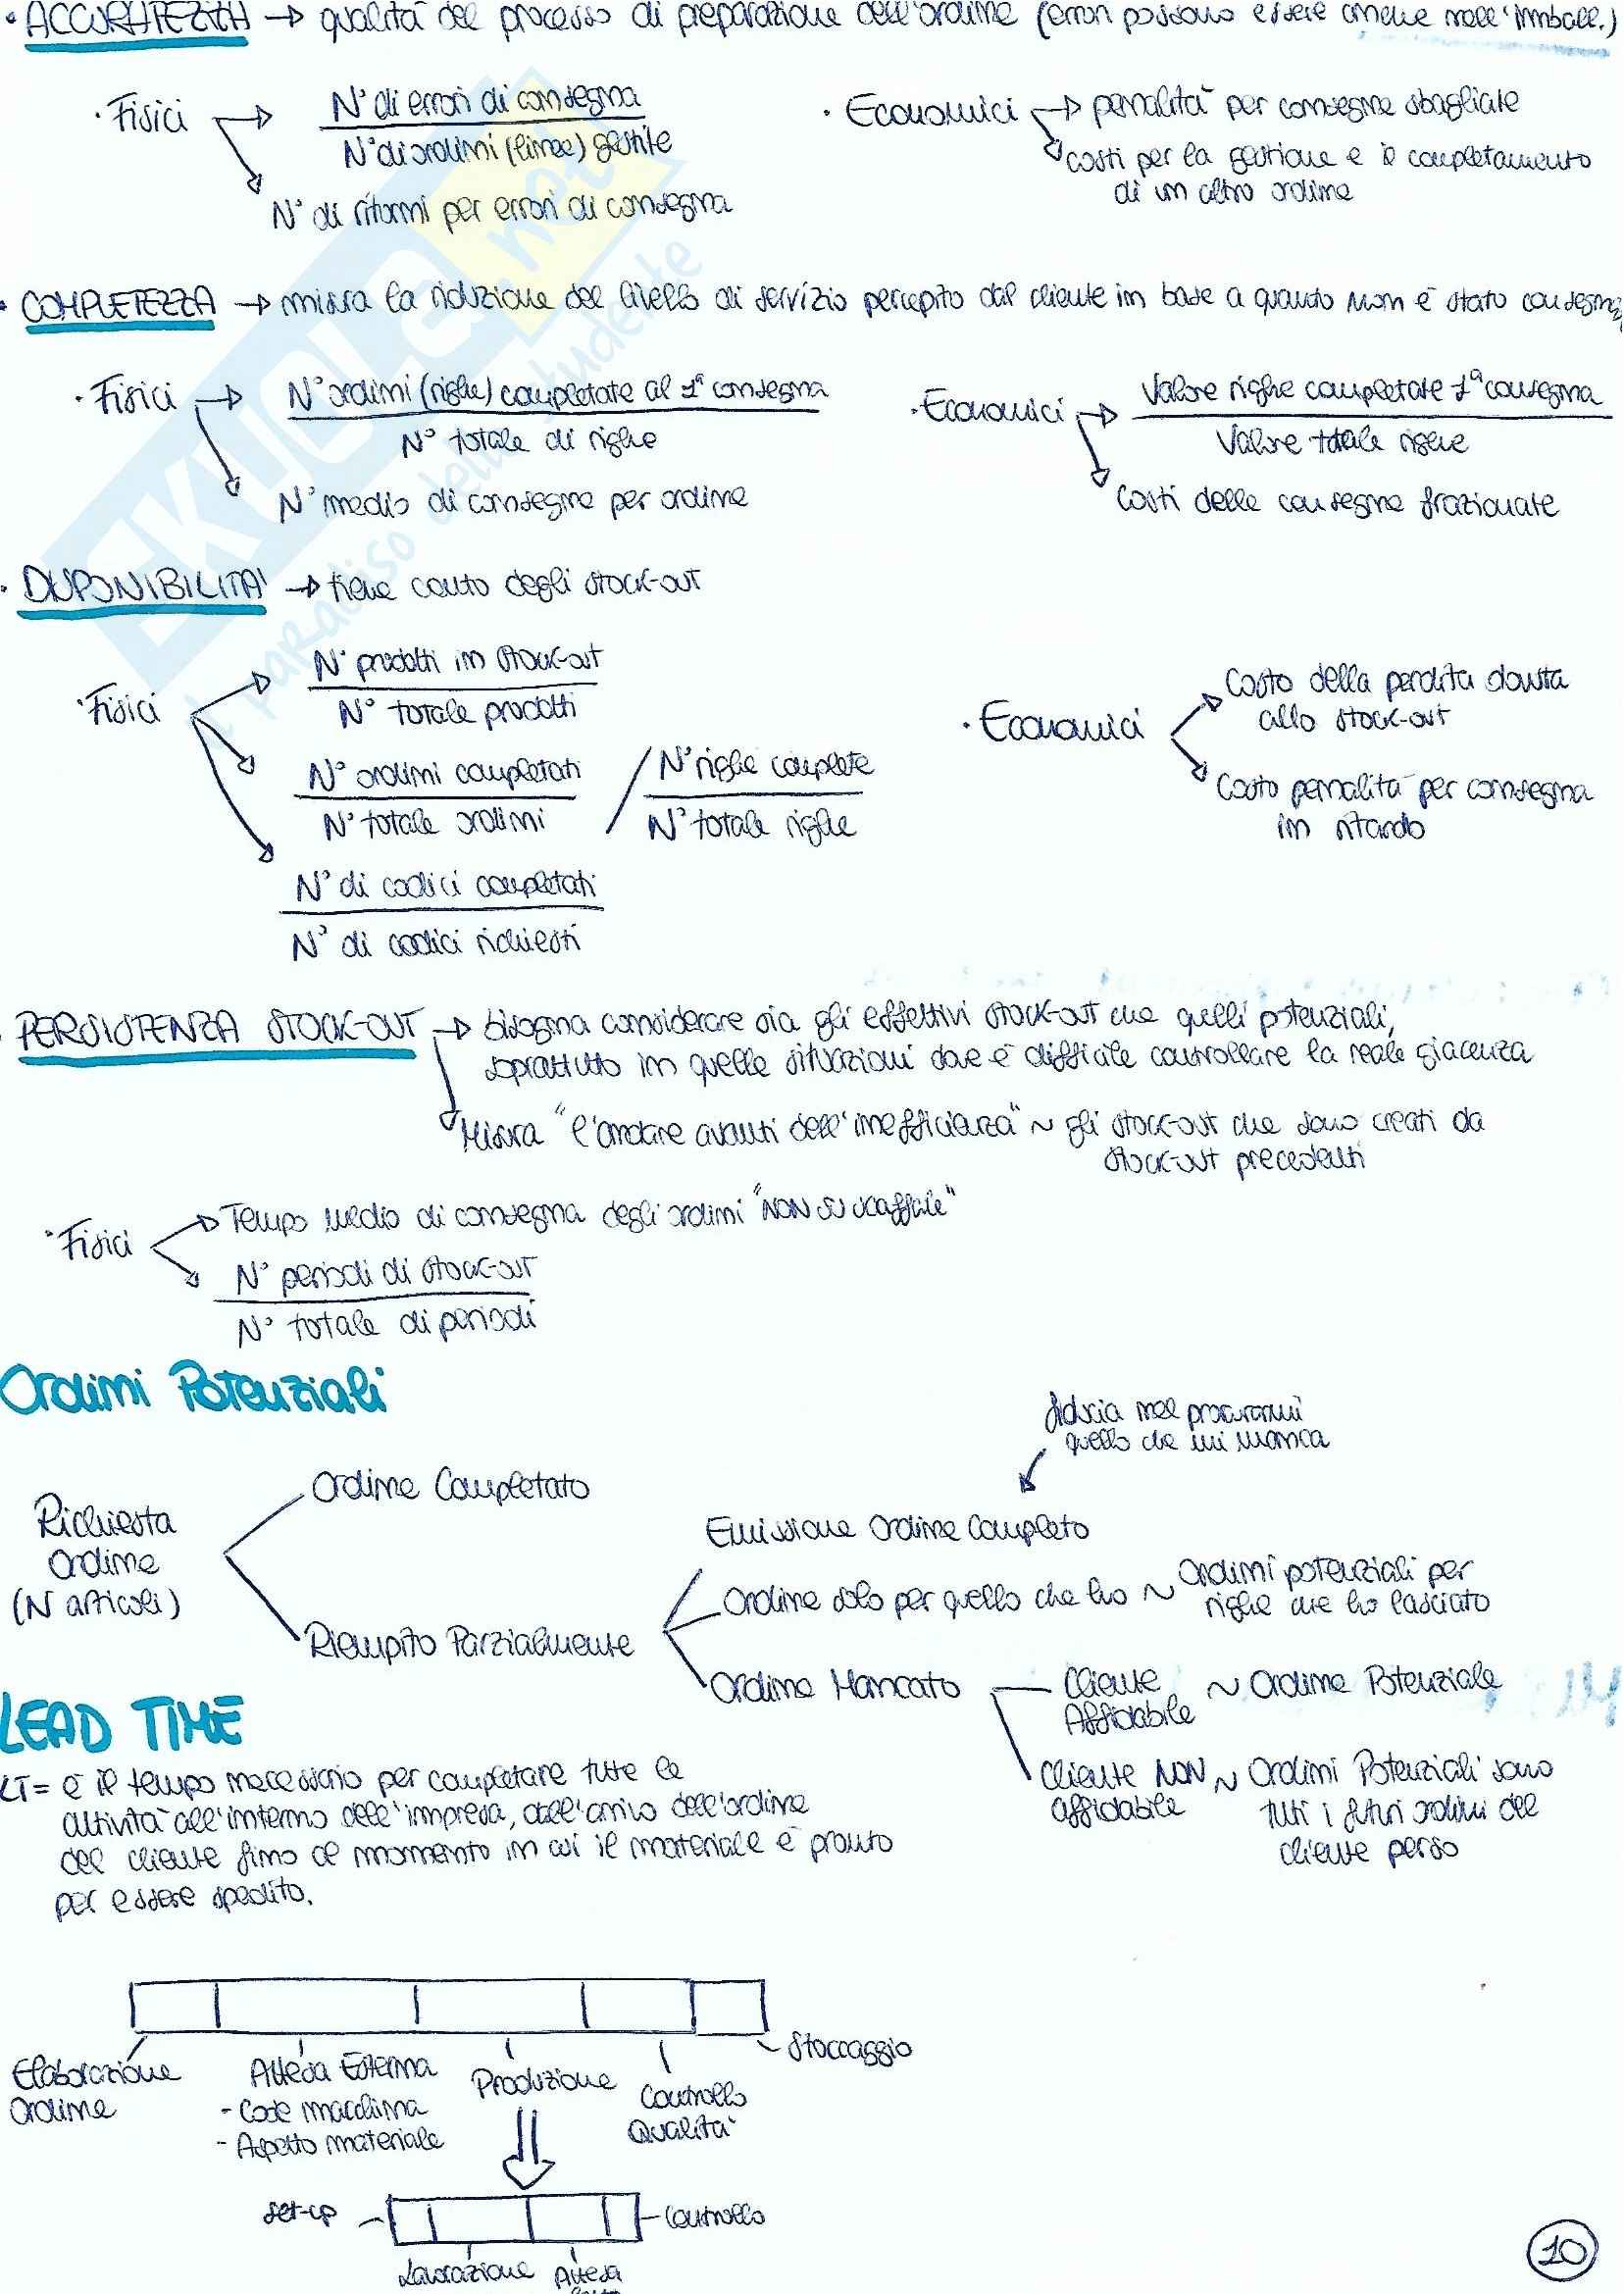 • ACCURATEZZA → qualità del processo di preparazione dell'ordine (errori possono essere anche nell'imball.)
· Fisici → N° di errori di consegna
N° di ordini (linee) gestite
N° di ritorni per errori di consegna
· Economici → penalità per consegne sbagliate
costi per la gestione e il completamento
di un altro ordine
• COMPLETEZZA → misura la riduzione del livello di servizio percepito dal cliente in base a quanto non è stato
· Fisici → N° ordini (righe) completate al 1ª consegna
N° totale di righe
N° medio di consegne per ordine
· Economici → Valore righe completate 1ª consegna
Valore totale righe
Costi delle consegne frazionate
• DISPONIBILITA' → tiene conto degli stock-out
· Fisici
N° prodotti in stock-out
N° totale prodotti
N° ordini completati / N° righe complete
N° totale ordini N° totale righe
N° di codici completati
N° di codici richiesti
· Economici
Costo della perdita dovuta
allo stock-out
Costo penalità per consegna
in ritardo
• PERSISTENZA STOCK-OUT → bisogna considerare sia gli effettivi stock-out che quelli potenziali,
soprattutto in quelle situazioni dove è difficile controllare la reale giacenza
Misura "l'andare avanti dell'inefficienza" ~ gli stock-out che sono creati da
stock-out precedenti
· Fisici
Tempo medio di consegna degli ordini "NON SU SCAFFALE"
N° periodi di stock-out
N° totale di periodi
Ordini Potenziali
Richiesta
Ordine
(N articoli)
Ordine Completato
Riempito Parzialmente
fiducia nel procurarmi
quello che mi manca
Emissione Ordine Completo
Ordine solo per quello che ho ~ Ordini potenziali per
righe che ho lasciato
Ordine Mancato
Cliente
Affidabile ~ Ordine Potenziale
Cliente NON
affidabile ~ Ordini Potenziali sono
tutti i futuri ordini del
cliente perso
LEAD TIME
LT= è il tempo necessario per completare tutte le
attività all'interno dell'impresa, dall'arrivo dell'ordine
del cliente fino al momento in cui il materiale è pronto
per essere spedito.
Elaborazione
Ordine
Attesa Esterna
- Code macchina
- Aspetto materiale
Produzione
Controllo
Qualità
Stoccaggio
set-up
Lavorazione
Attesa
Controllo
10
EKUOLA.net
il paradiso dello studente